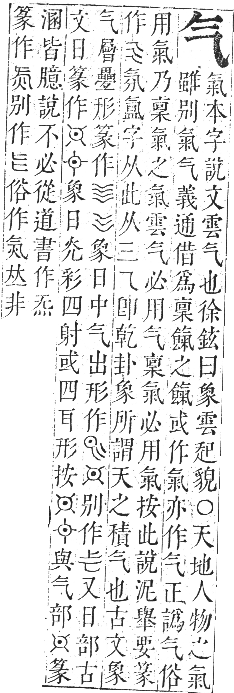 气 氣本字說文雲气也徐鉉曰象雲起貌○天地人物之氣
雖別氣气義通借爲稟餼之餼或作氣亦作气正譌气俗
用氣乃稟氣之氣雲气必用气稟氣必用氣按此說泥舉要篆
作 氛氲字从此从三乁卽乾卦象所謂天之積气也古文象
气層疊形篆作 象日中气出形作 別作 又日部古
文日篆作 象日光彩四射或四耳形按 與气部 篆
溷皆臆說不必從道書作炁
篆作 別作 俗作氣 非